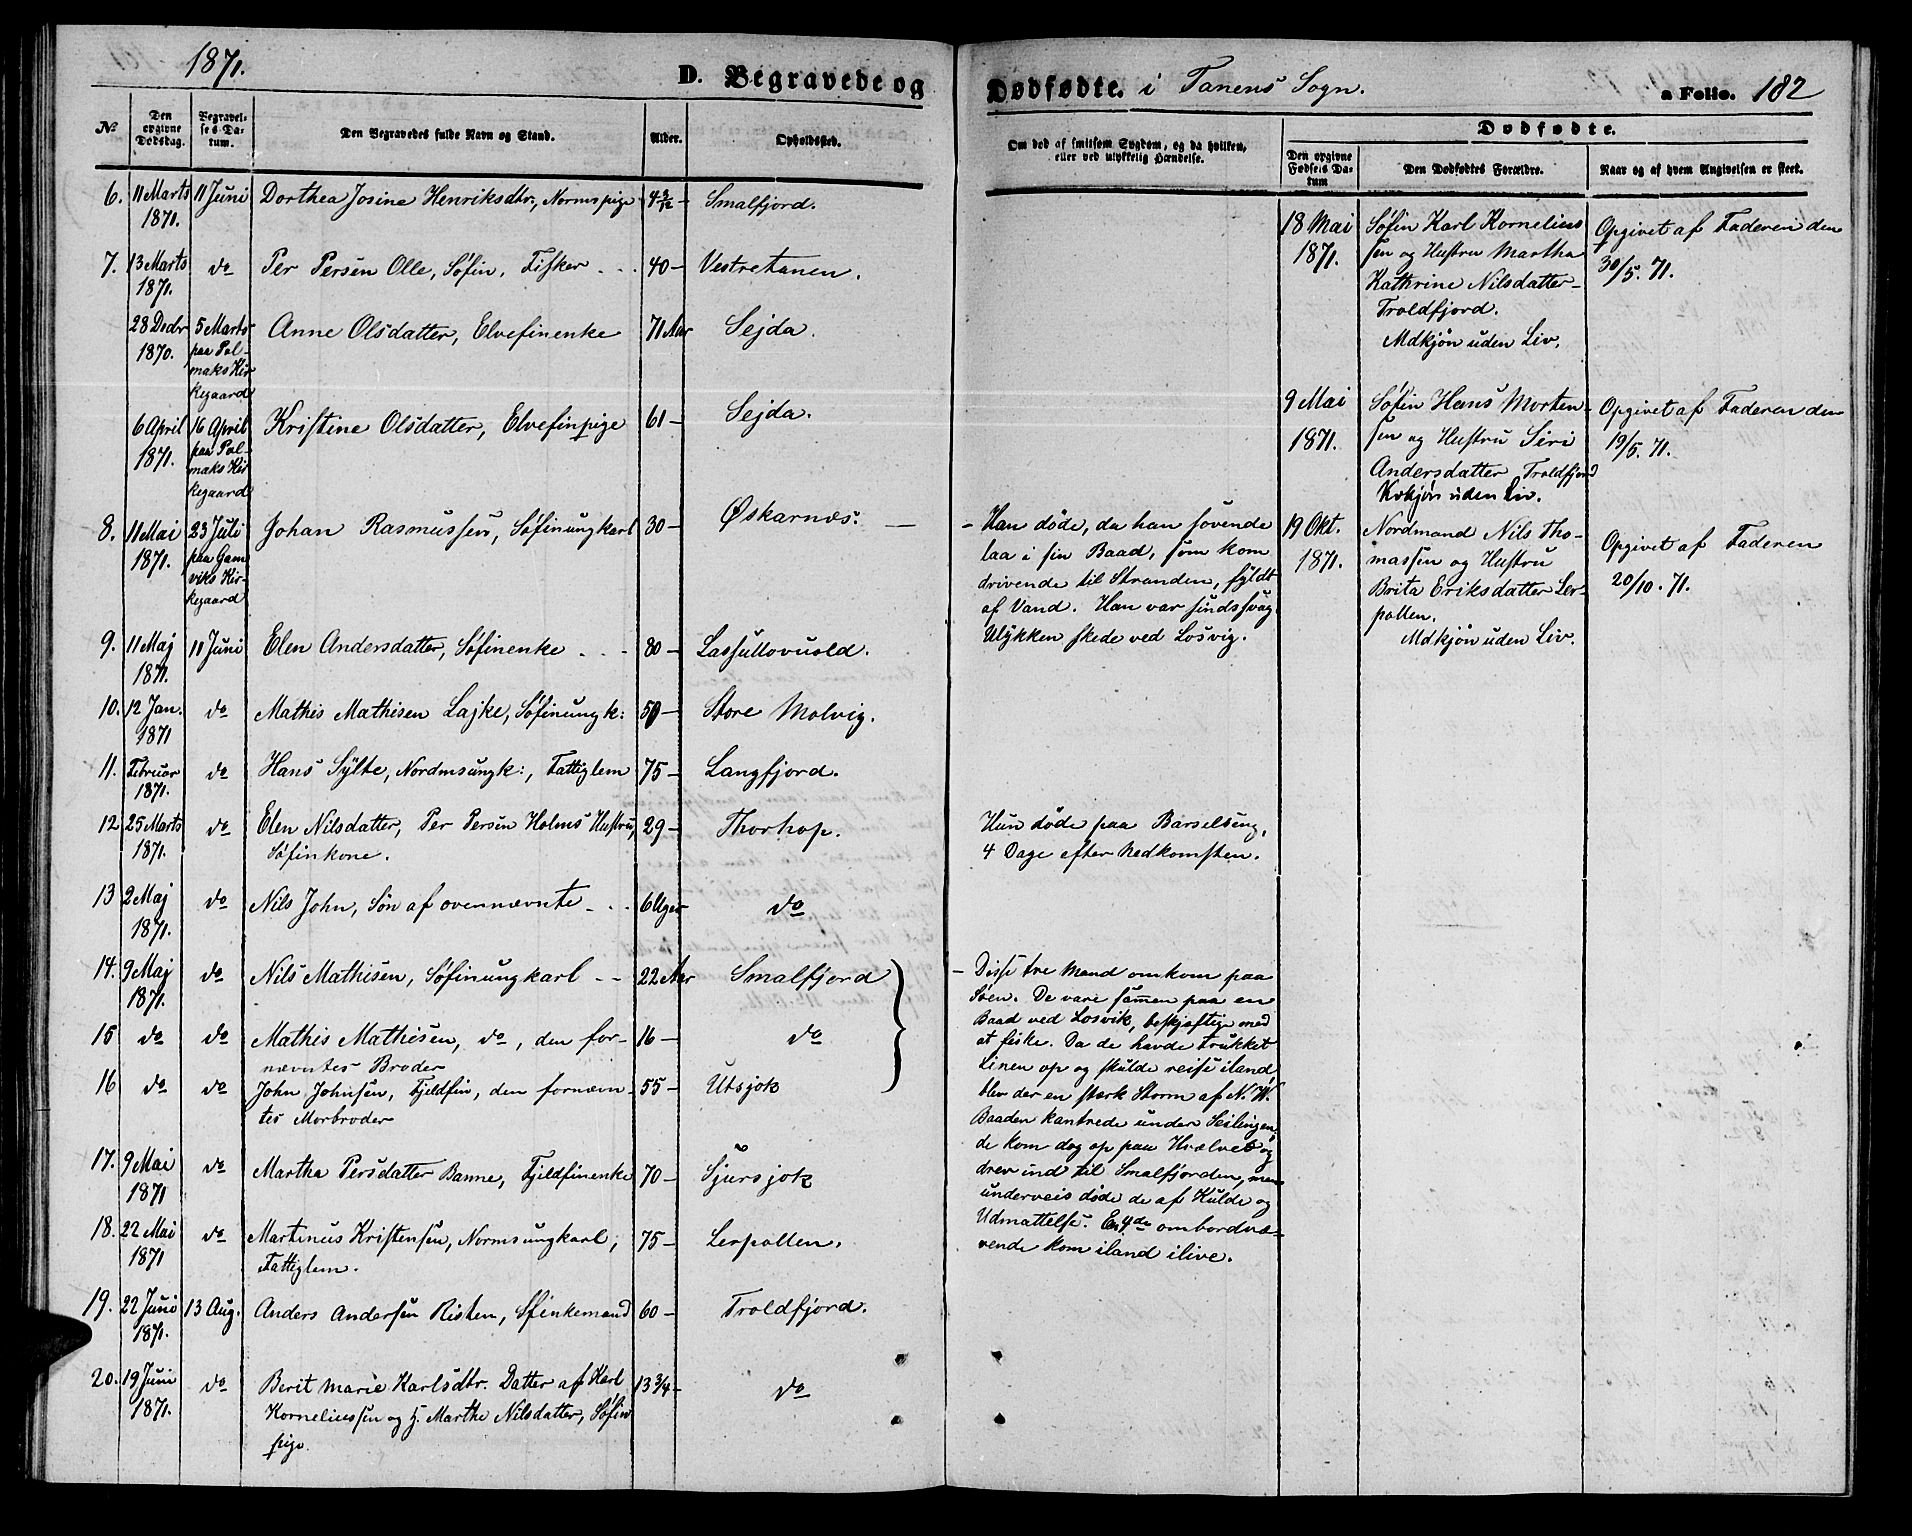 1871.
D. Begravede og
№
Den opgivne Dødsdag.
Begravelses Datum.
Den Begravedes fulde Navn og Stand.
Alder.
Opholdssted.
6. 11 Marts 11 Juni Dorthea Josine Henriksdtr:, Normspige 4 3/12 - Smalfjord.
1871.
7. 13 Marts do Per Persen Olle, Søfin, Fisker - . . 40 - Vestretanen.
1871.
28 Decbr 5 Marts Anne Olsdatter, Elvefinenke 71 Aar Sejda.
1870. paa Pol-
maks Kir-
kegaard
6 April 16 April Kristine Olsdatter, Elvefinpige 61 - Sejda.
1871. paa Pol-
maks Kir-
kegaard
8. 11 Mai 23 Juli Johan Rasmussen, Søfinungkarl 30 - Øskarnæs. —
1871. paa Gam-
viks Kir-
kegaard
9. 11 Maj 11 Juni Elen Andersdatter, Søfinenke . - - 80 - Lassullovuold.
1871.
10. 12 Jan. do Mathis Mathisen Lajke, Søfinungk: Store Molvig.
1871
11. Februar do Hans Sylte, Nordmsungk:, Fattiglem 75 - Langfjord.
1871.
12 25 Marts do Elen Nilsdatter, Per Persen Holms Hustru, 29 - Thorhop.
1871. Søfinkone.
13 2 Maj do Nils John, Søn af ovennævnte - . . 6 Uger do
1871.
14. 9 Maj do Nils Mathisen, Søfinungkarl - - 22 Aar Smalfjord
1871.
15 do do Mathis Mathisen, do, den for- 16 - do
nævntes Broder
16 do do John Johnsen, Fjeldfin, den fornævn- 55 - Utsjok
tes Morbroder
17. 9 Mai do Martha Persdatter Banne, Fjeldfinenke 70 - Sjursjok
1871
18. 22 Mai do Martinus Kristensen, Normsungkarl, 75 - Lerpollen.
1871 Fattiglem.
19. 22 Juni 13 Aug. Anders Andersen Risten, Sfinkemand 60 - Troldfjord.
1871.
20. 19 Juni do Berit Marie Karlsdtr. Datter af Karl 13 3/4 - do
1871. Korneliussen og H. Marthe Nilsdatter, Søfin
pige.
Dødfødte. i Tanens Sogn. a Folio. 182
Om død af smitsom Sygdom, og da hvilken,
eller ved ulykkelig Hændelse.
Dødfødte.
Den opgivne Fødsels Datum
Den Dødfødtes Forældre.
Naar og af hvem Angivelsen er skeet.
18 Mai Søfin Karl Kornelius Opgivet af Faderen den
1871. sen og Hustru Martha 30/5. 71.
Kathrine Nilsdatter -
Troldfjord.
Mdkjøn uden Liv.
9 Mai Søfin Hans Morten- Opgivet af Faderen den
1871. sen og Hustru Siri 19/5. 71.
Andersdatter, Troldfjord
Kvkjøn uden Liv.
- Han døde, da han sovende 19 Okt. Nordmand Nils Tho-
laa i sin Baad, som kom 1871. massen og Hustru Opgivet af Faderen
drivende til Stranden, fyldt Brita Eriksdatter Ler- 20/10. 71.
af Vand. Han var sindssvag. pollen.
Ulykken skede ved Losvig. Mdkjøn uden Liv.
Hun døde paa Barselseng,
4 Dage efter Nedkomsten.
- Disse tre Mænd omkom paa
Søen. De vare sammen paa en
Baad ved Losvik, beskjæftige med
at fiske. Da de havde trukket
Linen op og skulde reise iland
blev der en stærk Storm af N. W.
Baaden kantrede under Seilingen,
de kom dog op paa Hvælvet og
drev ind til Smalfjorden, men
underveis døde de af Kulde og
Udmattelse. En 4de ombordvæ-
rende kom iland ilive.